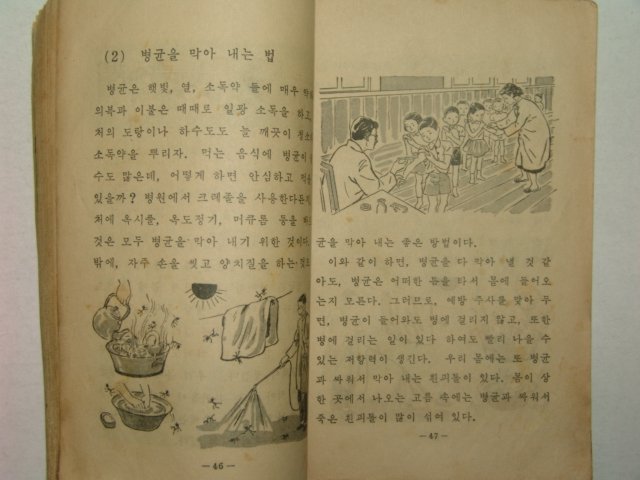 (2) 병균을 막아 내는 법
병균은 햇빛, 열, 소독약 들에 매우
의복과 이불은 때때로 일광 소독을 하고,
처의 도랑이나 하수도도 늘 깨끗이
소독약을 뿌리자. 먹는 음식에 병균이
수도 많은데, 어떻게 하면 안심하고
있을까? 병원에서 크레졸을 사용한다든지
처에 옥시풀, 옥도정기, 머큐롬 등을
것은 모두 병균을 막아 내기 위한 것이다.
밖에, 자주 손을 씻고 양치질을 하는
—46—
균을 막아 내는 좋은 방법이다.
이와 같이 하면, 병균을 다 막아 낼 것 같
아도, 병균은 어떠한 틈을 타서 몸에 들어오
는지 모른다. 그러므로, 예방 주사를 맞아 두
면, 병균이 들어와도 병에 걸리지 않고, 또한
병에 걸리는 일이 있다 하여도 빨리 나을 수
있는 저항력이 생긴다. 우리 몸에는 또 병균
과 싸워서 막아 내는 흰피톨이 있다. 몸이 상
한 곳에서 나오는 고름 속에는 병균과 싸워서
죽은 흰피톨이 많이 섞여 있다.
—47—